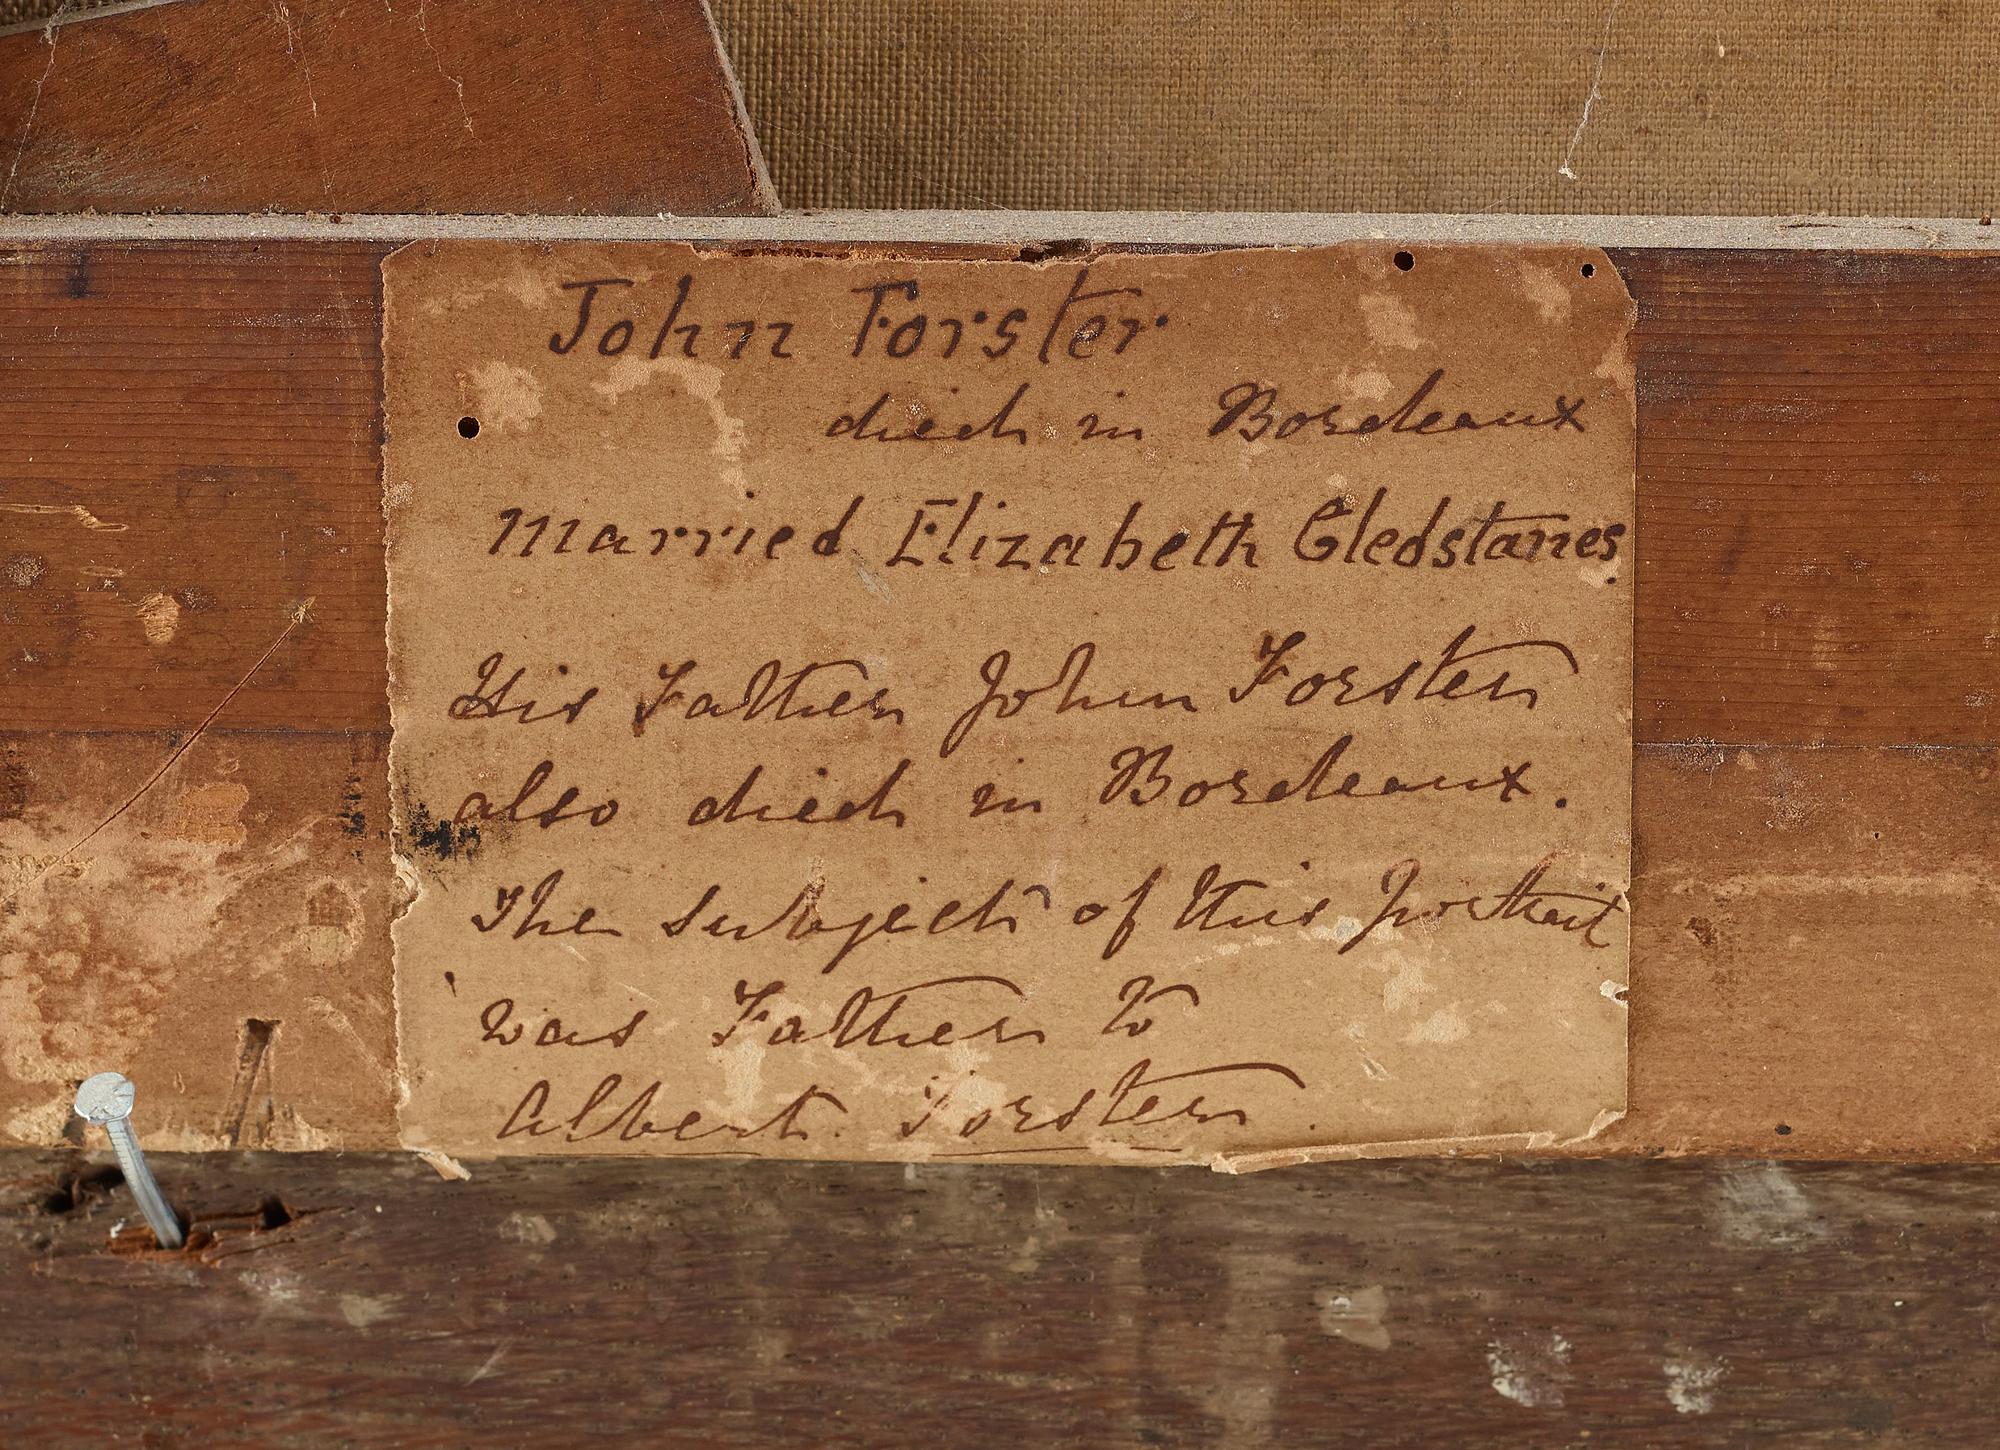 John Forster.
died in Bordeaux
Married Elizabeth Gledstanes.
His Father John Forster
also died in Bordeaux.
The subject of this portrait
was Father to
Albert Forster.